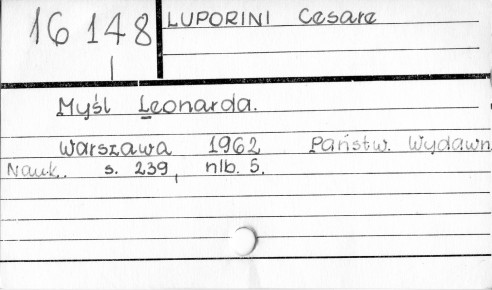 16 148
LUPORINI Cesare
Myśl Leonarda.
Warszawa 1962 Państw. Wydawn
Nauk. s. 239, nlb. 5.